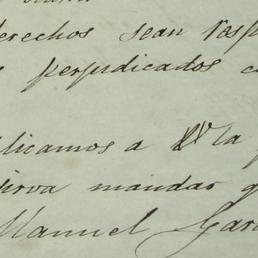 derechos sean resp
perjudicados c
licamos a V. la g
sirva mandar q
Manuel Gar